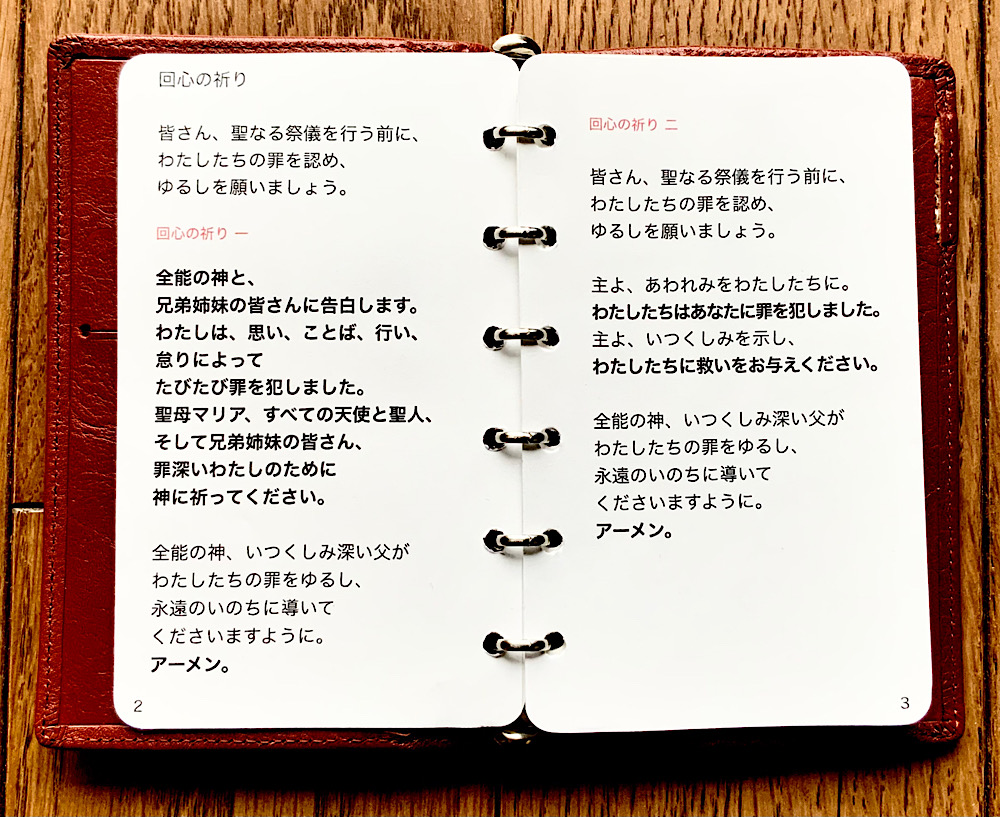 回心の祈り
皆さん、聖なる祭儀を行う前に、
わたしたちの罪を認め、
ゆるしを願いましょう。
回心の祈り 一
全能の神と、
兄弟姉妹の皆さんに告白します。
わたしは、思い、ことば、行い、
怠りによって
たびたび罪を犯しました。
聖母マリア、すべての天使と聖人、
そして兄弟姉妹の皆さん、
罪深いわたしのために
神に祈ってください。
全能の神、いつくしみ深い父が
わたしたちの罪をゆるし、
永遠のいのちに導いて
くださいますように。
アーメン。
2
回心の祈り 二
皆さん、聖なる祭儀を行う前に、
わたしたちの罪を認め、
ゆるしを願いましょう。
主よ、あわれみをわたしたちに。
わたしたちはあなたに罪を犯しました。
主よ、いつくしみを示し、
わたしたちに救いをお与えください。
全能の神、いつくしみ深い父が
わたしたちの罪をゆるし、
永遠のいのちに導いて
くださいますように。
アーメン。
3